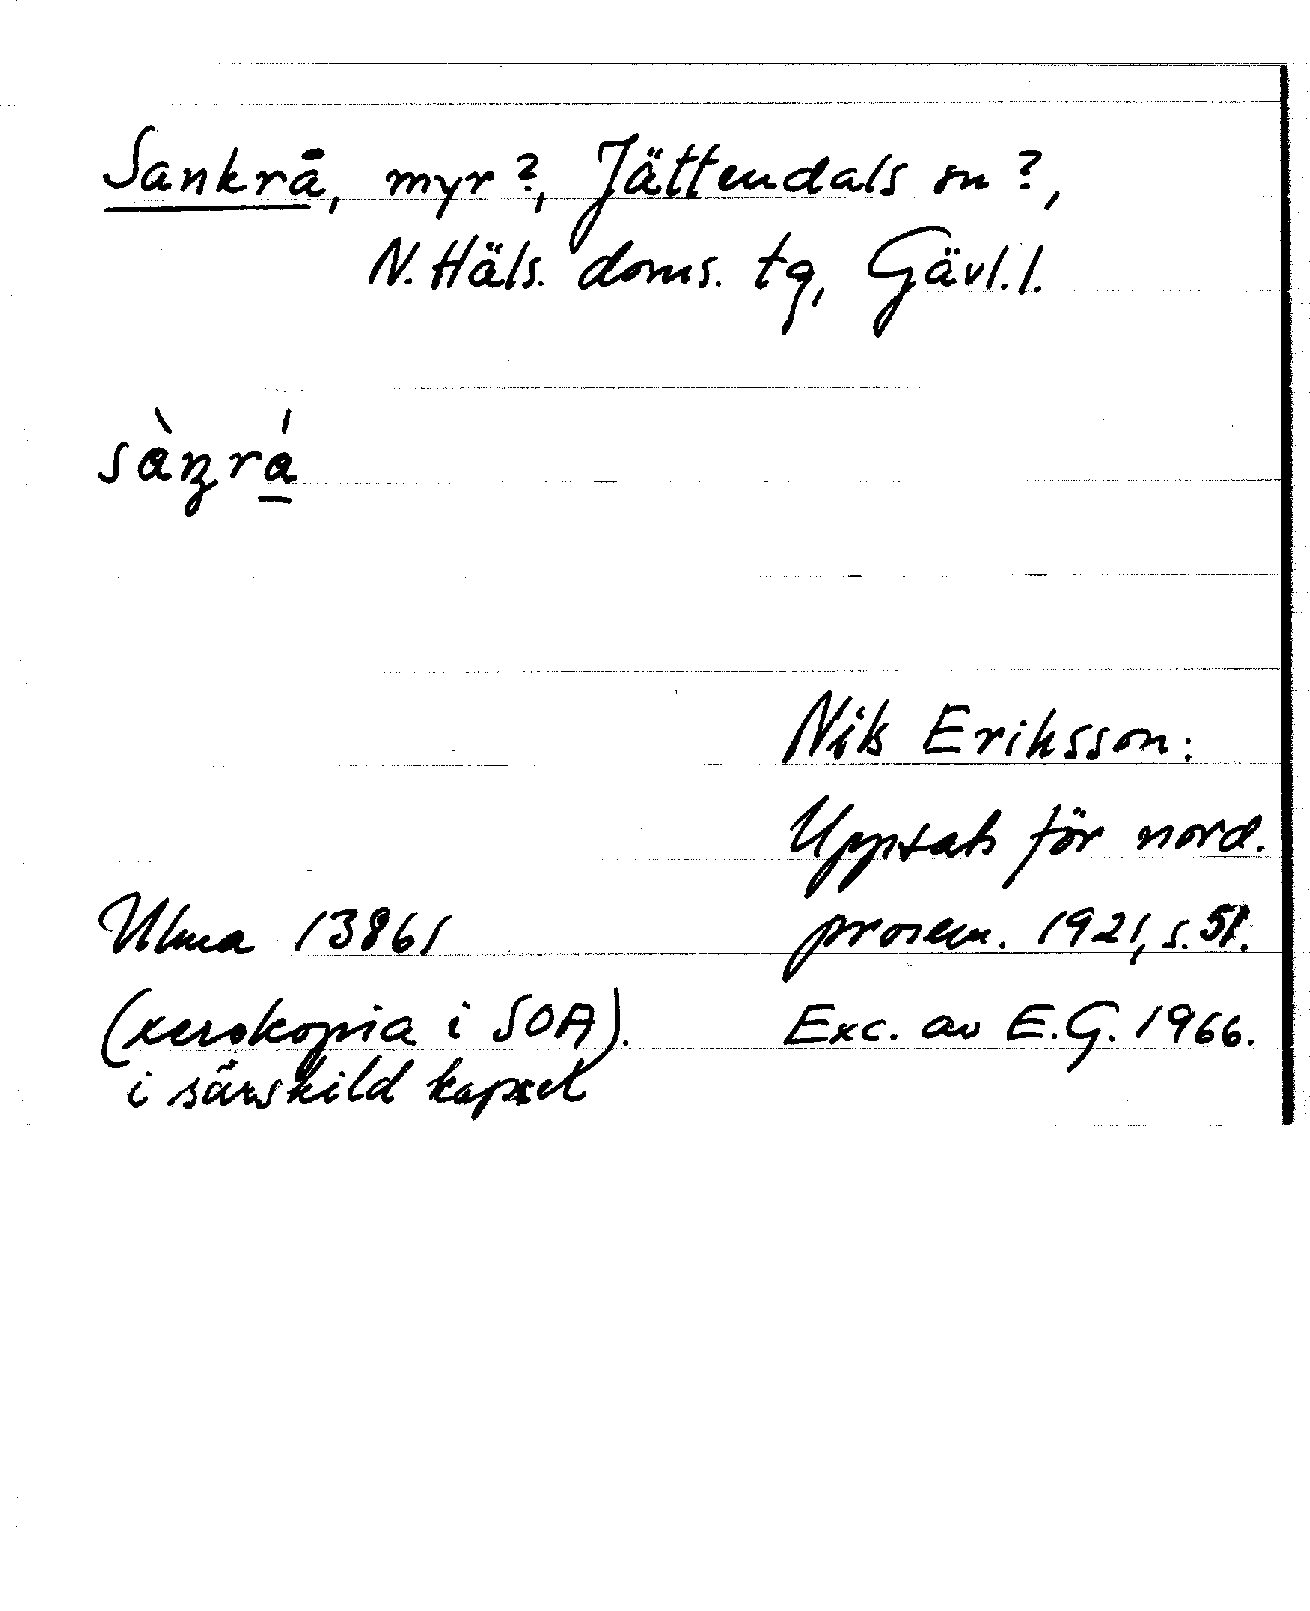 Sankrå, myr?, Jättendals sn?,
N. Häls. doms. tg, Gävl. l.
sàŋrá
Nils Eriksson:
Uppsats för nord.
prosem. 1921, s. 51.
Ulma 13861
(xerokopia i SOA).
i särskild kapsel
Exc. av E.G. 1966.